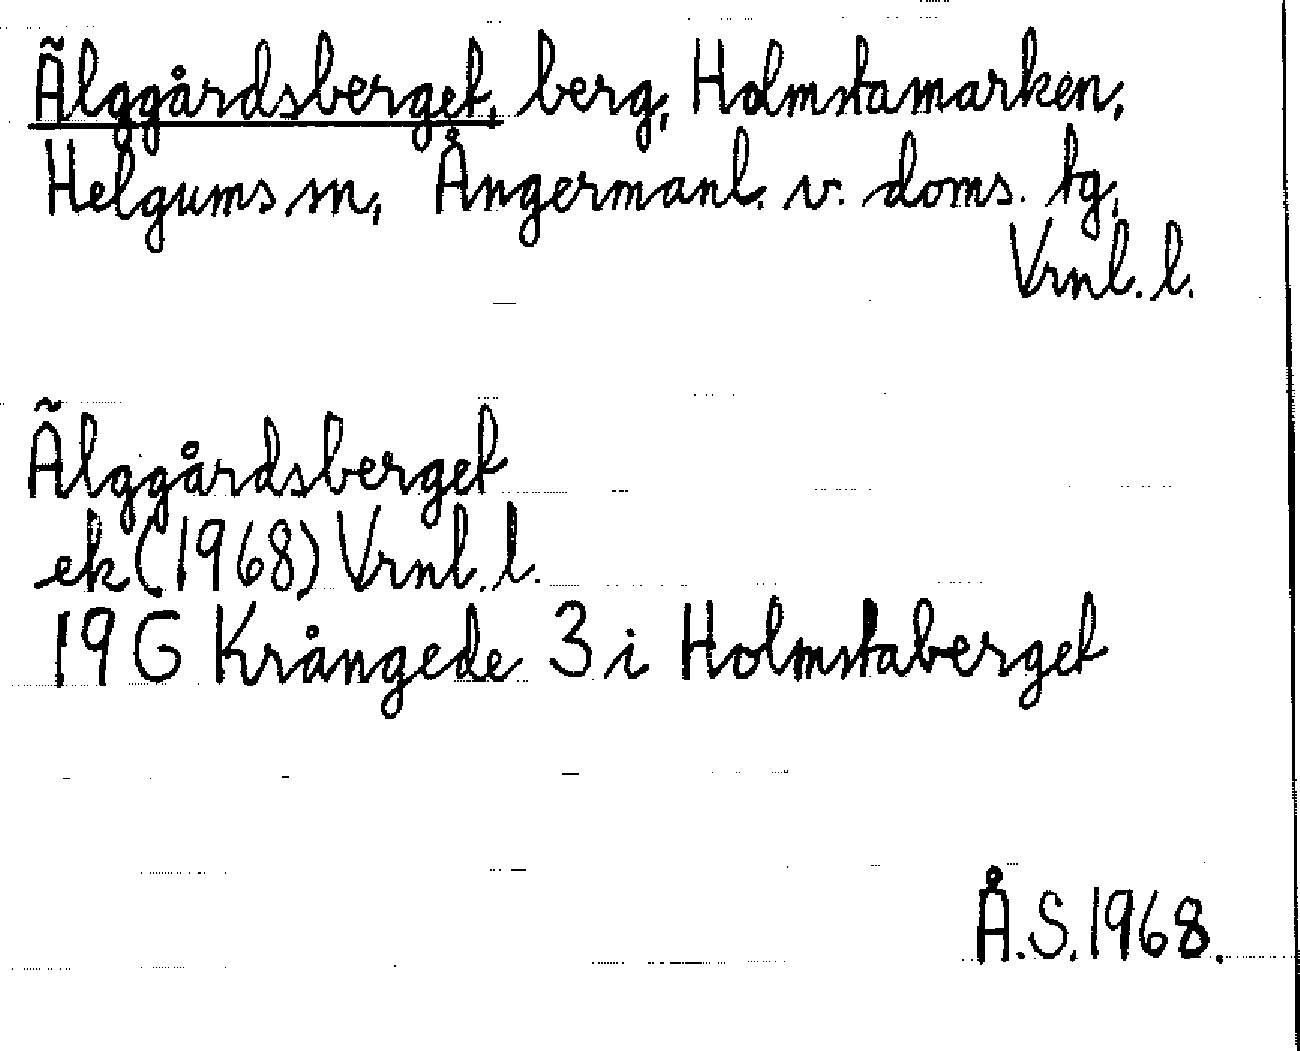 Älggårdsberget, berg, Holmstamarken,
Helgums sn, Ångermanl. v. doms. tg,
Vrnl. l.
Älggårdsberget
ek (1968) Vrnl. l.
19G Krångede 3 i Holmstaberget
Å.S. 1968.